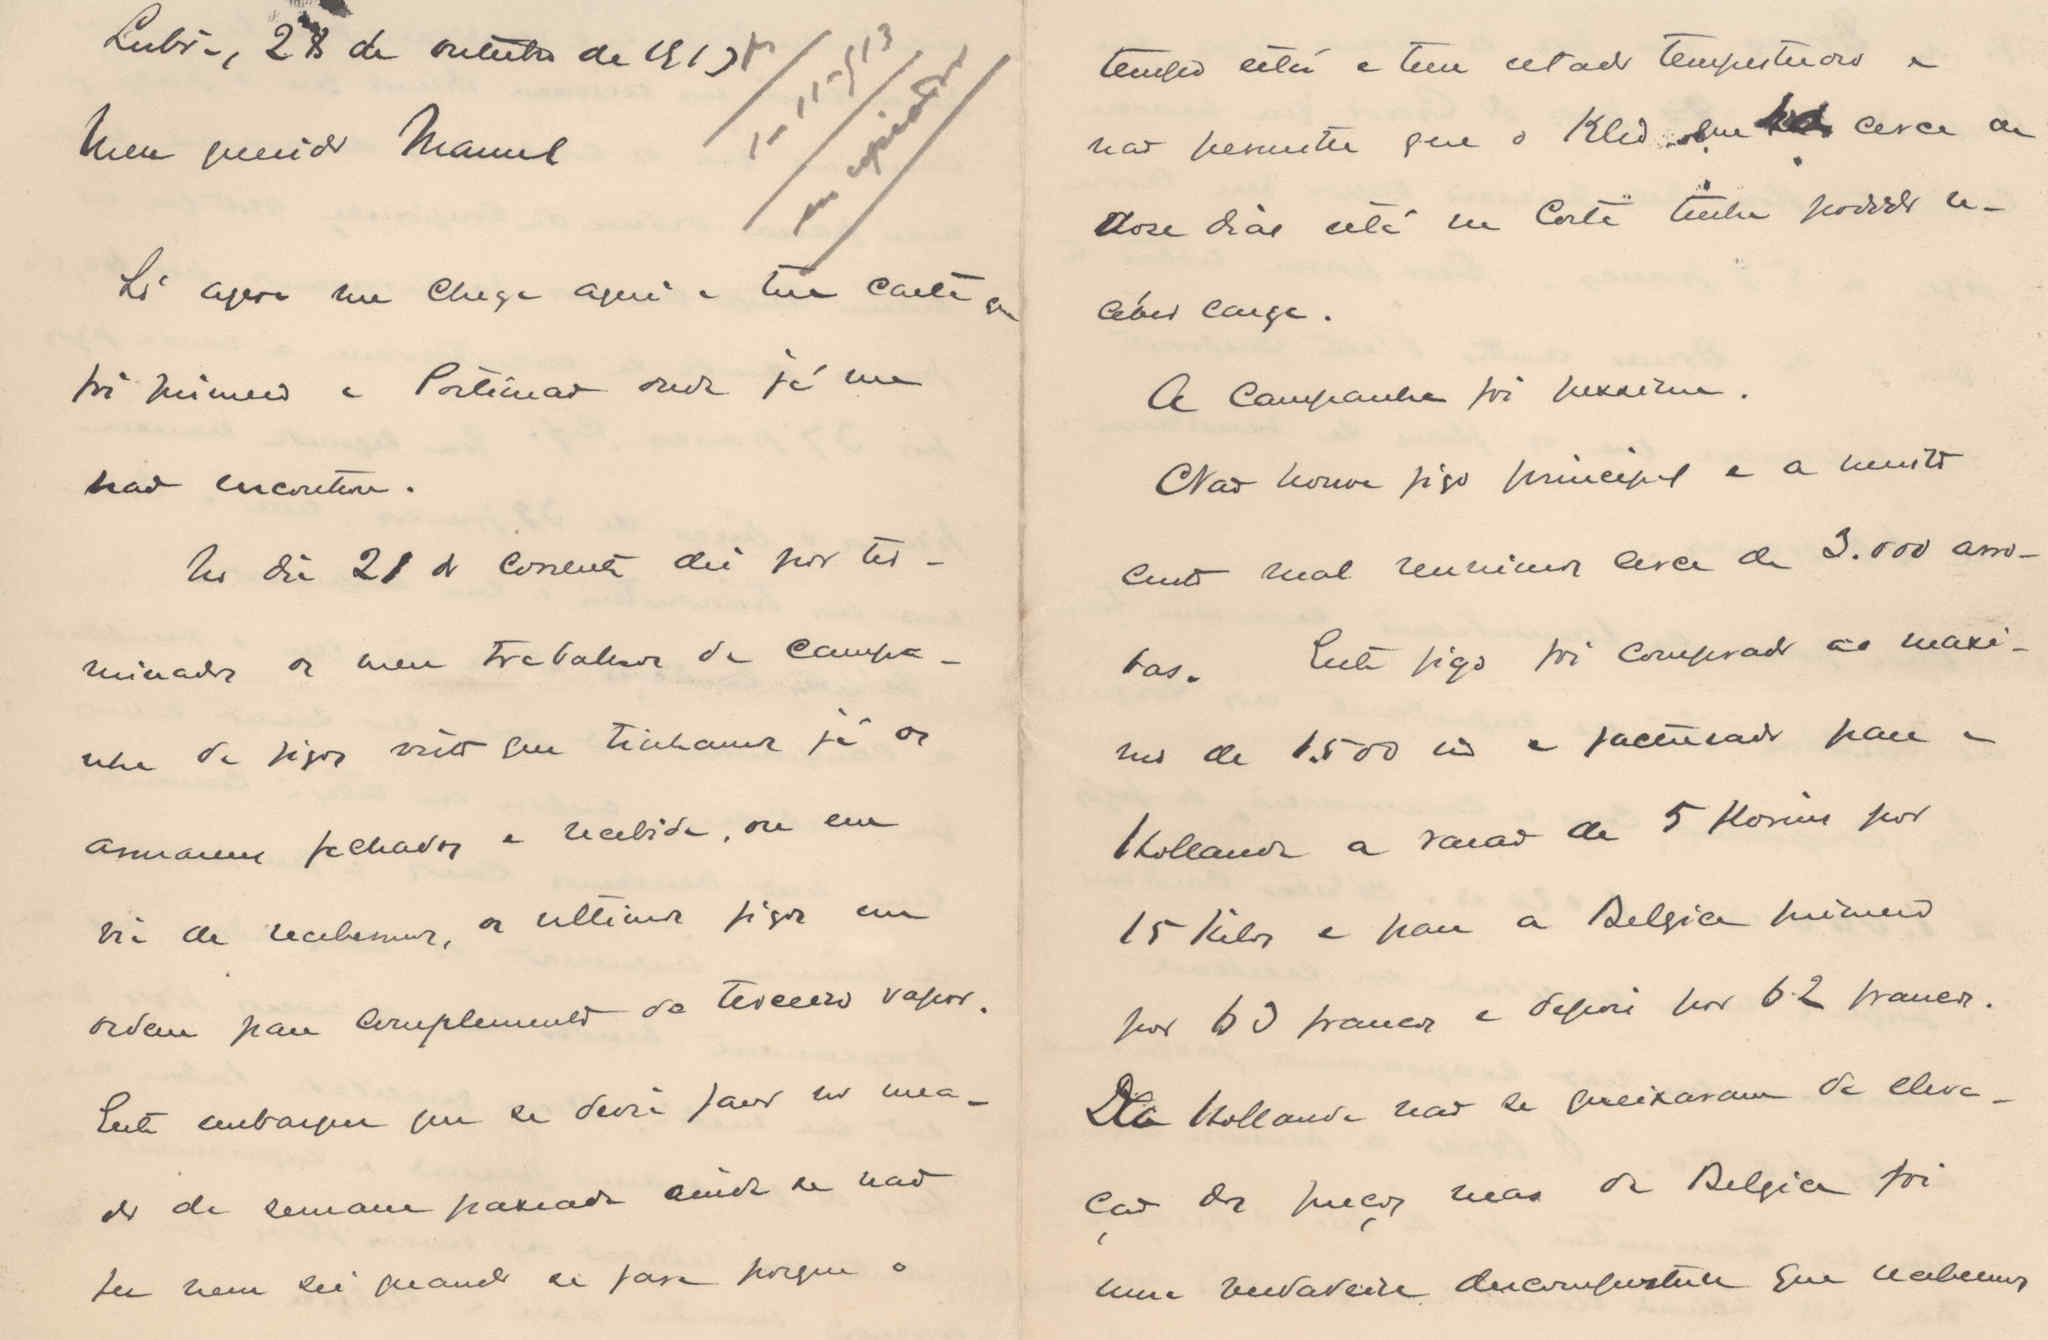 Lisbôa, 28 de outubro de 1913
1-11-913
Meu querido Manuel
Só agora me chega aqui a tua carta que
foi primeiro a Portimão onde já me
não encontrou.
No dia 21 do corrente dei por ter-
minados os meus trabalhos da campa-
nha de figos visto que tinhamos já os
armazens fechados e recebidos, ou em
via de recebermos, os ultimos figos em
ordem para complemento do terceiro vapor.
Este embarque que se devia fazer no mea-
do da semana passada ainda se não
fez nem sei quando se fará porque o
tempo está e tem estado tempestuoso e
não permitte que o Klio que ha cerca de
doze dias está na Costa tenha podido re-
ceber carga.
A Campanha foi pessima.
Não houve figo principal e a muito
custo mal reunimos cerca de 3.000 arro-
bas. Este figo foi comprado ao maxi-
mo de 1.500 rs e facturado para a
Hollanda a razão de 5 florins por
15 kilos e para a Belgica primeiro
por 63 francos e depois por 62 francos.
Da Hollanda não se queixaram da eleva-
ção dos preços mas da Belgica foi
uma verdadeira descompostura que recebemos